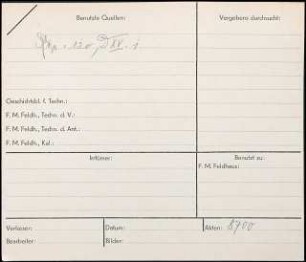 Benutzte Quellen:
Vergebens durchsucht:
Geschichtsbl. f. Techn.:
F. M. Feldh., Techn. d. V.:
F. M. Feldh., Techn. d. Ant.:
F. M. Feldh., Kal.:
Irrtümer:
Benutzt zu:
F. M. Feldhaus:
Verfasser:
Datum:
Akten: 8700
Bearbeiter:
Bilder: